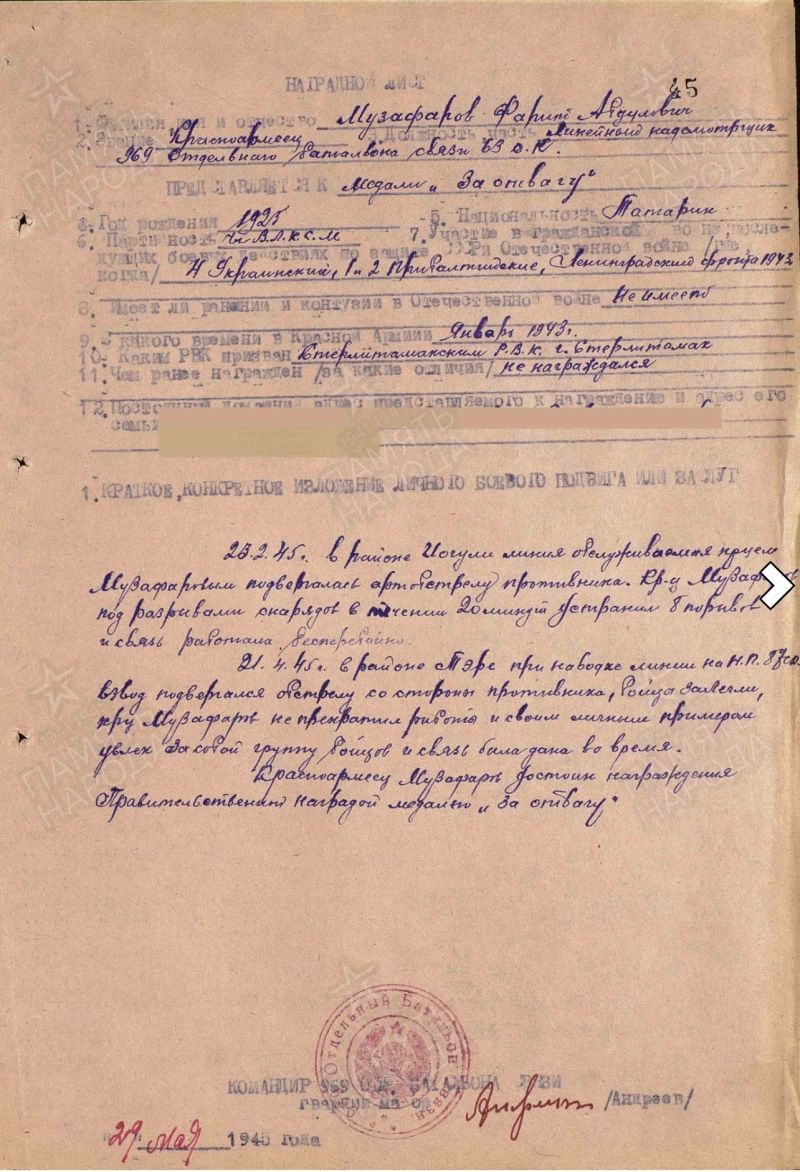 45
НАГРАДНОЙ ЛИСТ
1. Фамилия имя и отчество Музафаров Фарит Абдулович
2. Звание Красноармеец 3. Должность часть Линейный надсмотрщик
969 Отдельнаго баталвона связи 63 с.к.
ПРЕДСТАВЛЯЕТСЯ К медали „За отвагу"
4. Год рождения 1925 5. Национальность Татарин
6. Партийность Чл. В.Л.К.С.М 7. Участие в гражданской войне, после-
дующих боевых действиях по защите СССР и Отечественной войне /где,
когда/ 4 Украинский, 1 и 2 Прибалтийские, Ленинградский фронта 1943
8. Имеет ли ранении и контузии в Отечественной войне Не имеет
9. С какого времени в Красной Армиии Январь 1943г.
10. Каким РВК призван Стерлитамакским Р.В.К. г. Стерлитамак
11. Чем ранее награжден /за какие отличия/ не награждался
12. Постоянный домашний адрес представляемого к награждение и адрес его
семьи
1. КРАТКОЕ, КОНКРЕТНОЕ ИЗЛОЖЕНИЕ ЛИЧНОГО БОЕВОГО ПОДВИГА ИЛИ ЗАСЛУГ
23.2.45г. в районе линия обслуживаемая кр-цем
Музафаровым подвергалась артобстрелу противника. Кр-ц Музафаров
под разрывами снарядов в течении 20 минут устранил 8 порывов
и связь работала бесперебойно.
21.4.45г. в районе Тэрс при наводке линии на Н.П. 87сд.
взвод подвергался обстрелу со стороны противника, бойца залегли,
кр-ц Музафаров не прекратил работы и своим личним примером
увлек за собой группу бойцов и связь была дана во время.
Красноармеец Музафаров достоин награждения
Правительственной наградой медалью „За отвагу"
КОМАНДИР 969 О. БАТАЛЬОНА СВЯЗИ
гвардии майор /Андреев/
29 мая 1945 года
Отдельный Батальон Связи
ПАМЯТЬ НАРОДА